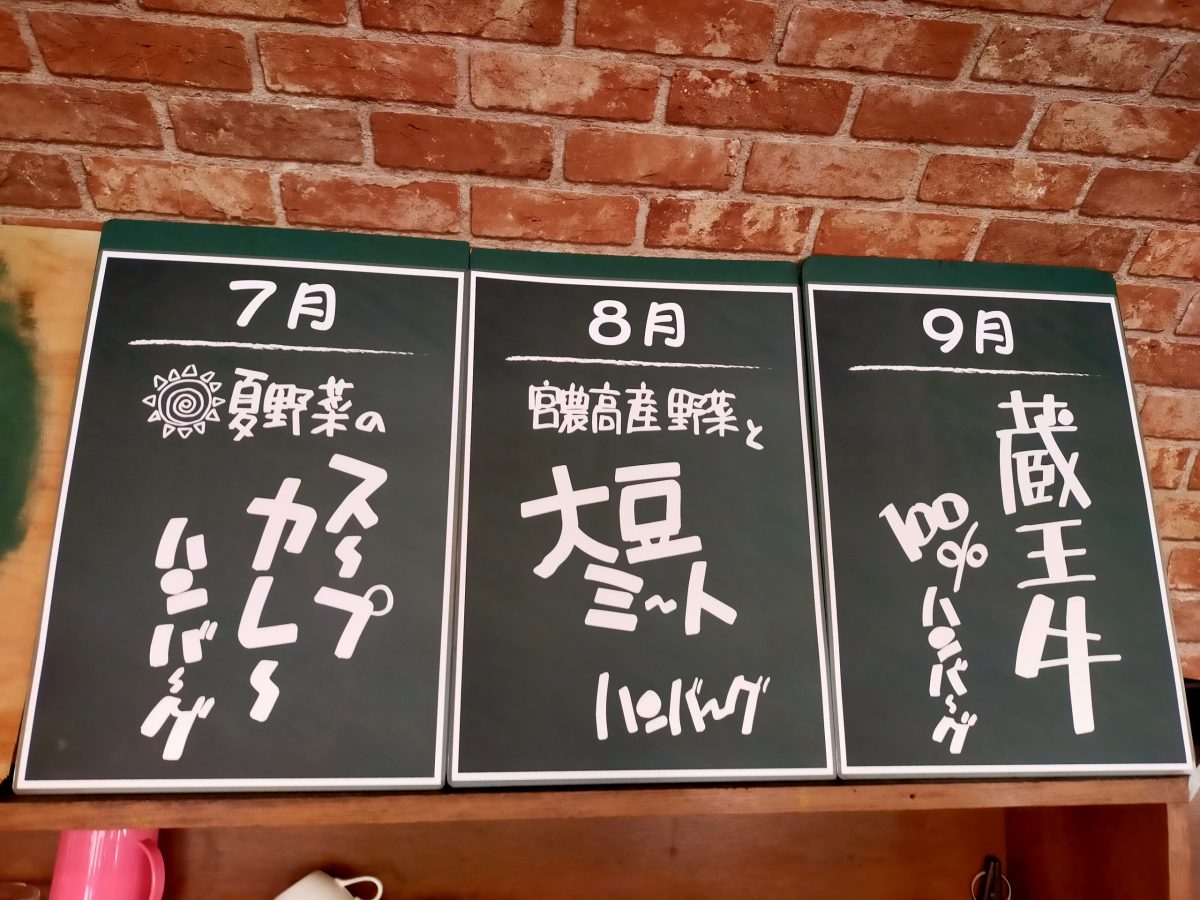 7月
夏野菜の
スープ
カレー
ハンバーグ
8月
宮農高産野菜と
大豆
ミート
ハンバーグ
9月
蔵王牛
100%ハンバーグ